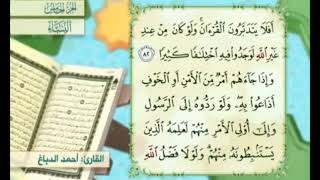 الجزء الخامس
النساء
أَفَلَا يَتَدَبَّرُونَ الْقُرْءَانَ وَلَوْ كَانَ مِنْ عِندِ
غَيْرِ اللَّهِ لَوَجَدُوا فِيهِ اخْتِلَافًا كَثِيرًا ٨٢
وَإِذَا جَاءَهُمْ أَمْرٌ مِّنَ الْأَمْنِ أَوِ الْخَوْفِ
أَذَاعُوا بِهِ وَلَوْ رَدُّوهُ إِلَى الرَّسُولِ
وَإِلَى أُولِي الْأَمْرِ مِنْهُمْ لَعَلِمَهُ الَّذِينَ
يَسْتَنبِطُونَهُ مِنْهُمْ وَلَوْلَا فَضْلُ اللَّهِ
القارئ: أحمد الدباغ